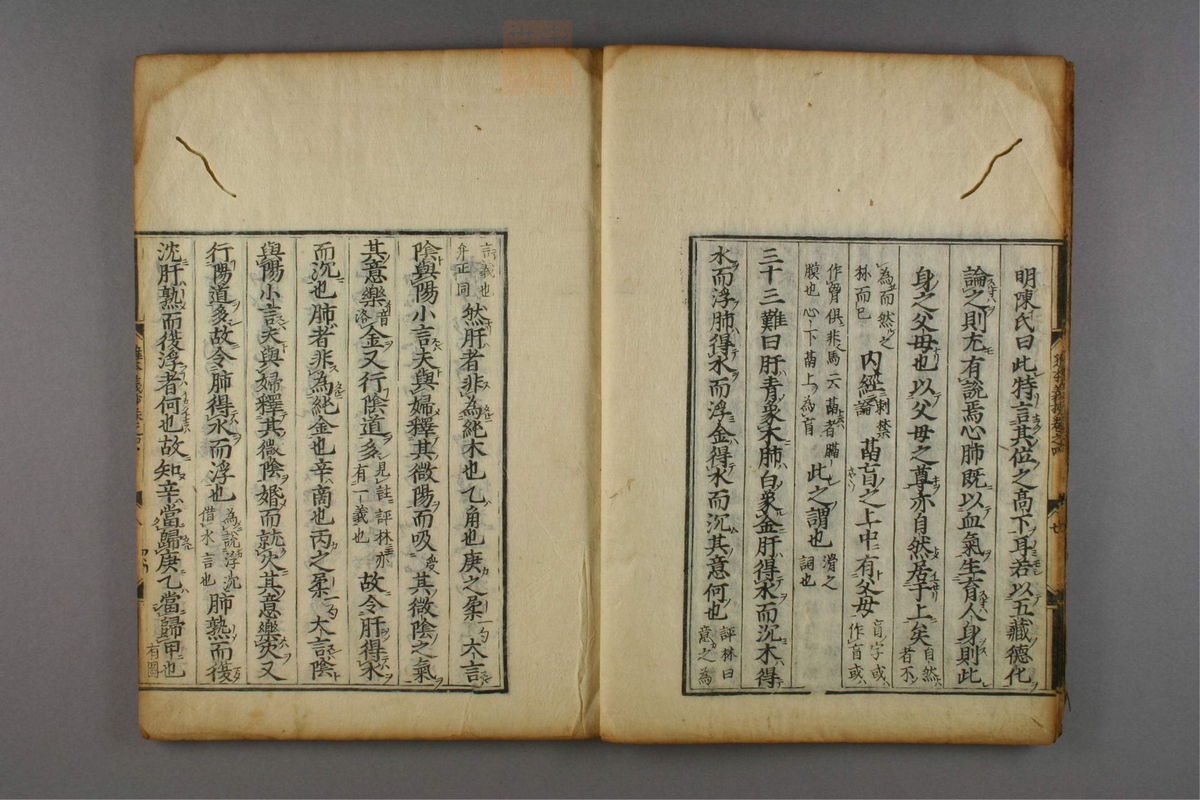 明陳氏曰此特言其位之高下耳若以五藏德化
論之則尤有說焉心肺既以血氣生育人身則此
身之父母也以父母之尊亦自然居于上矣自然者不
為而然之林而已內經刺禁論鬲肓之上中有父母肓字或作盲或
作膏俱非馬云鬲者膈膜也心下鬲上為肓此之謂也滑之詞也
三十三難曰肝青象木肺白象金肝得水而沉木得
水而浮肺得水而浮金得水而沉其意何也評林曰意之為
言義也弁正同然肝者非為純木也乙角也庚之柔一勺大言
陰與陽小言夫與婦釋其微陽而吸其微陰之氣
其意樂音洛金又行陰道多見註評林亦有一義也故令肝得水
而沉也肺者非為純金也辛商也丙之柔一勺大言陰
與陽小言夫與婦釋其微陰婚而就火其意樂火又
行陽道多故令肺得水而浮也為說浮沉借水言也肺熟而復
沈肝熟而復浮者何也故知辛當歸庚乙當歸甲也有圖